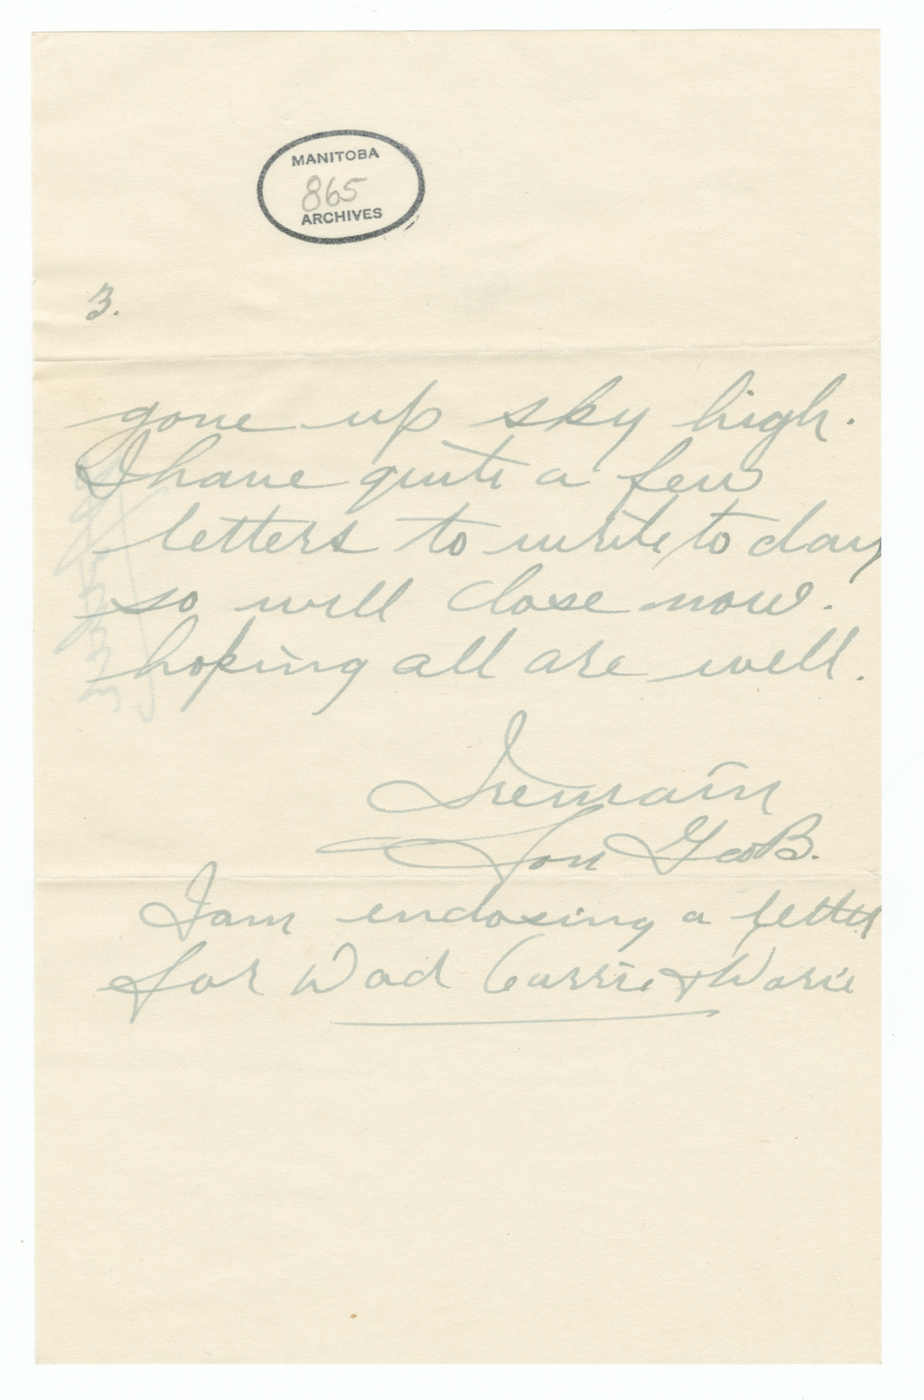 MANITOBA
865
ARCHIVES
3.
gone up sky high.
I have quite a few
letters to write to day
so will close now.
hoping all are well.
I remain
Son Geo B.
I am enclosing a letter
for Dad Carrie &